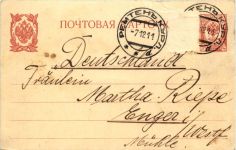 ПОЧТОВАЯ КАРТОЧКА
-7.12.11
Deutschland
Fräulein
Martha Riepe
Enger i/Westf
Mühle.